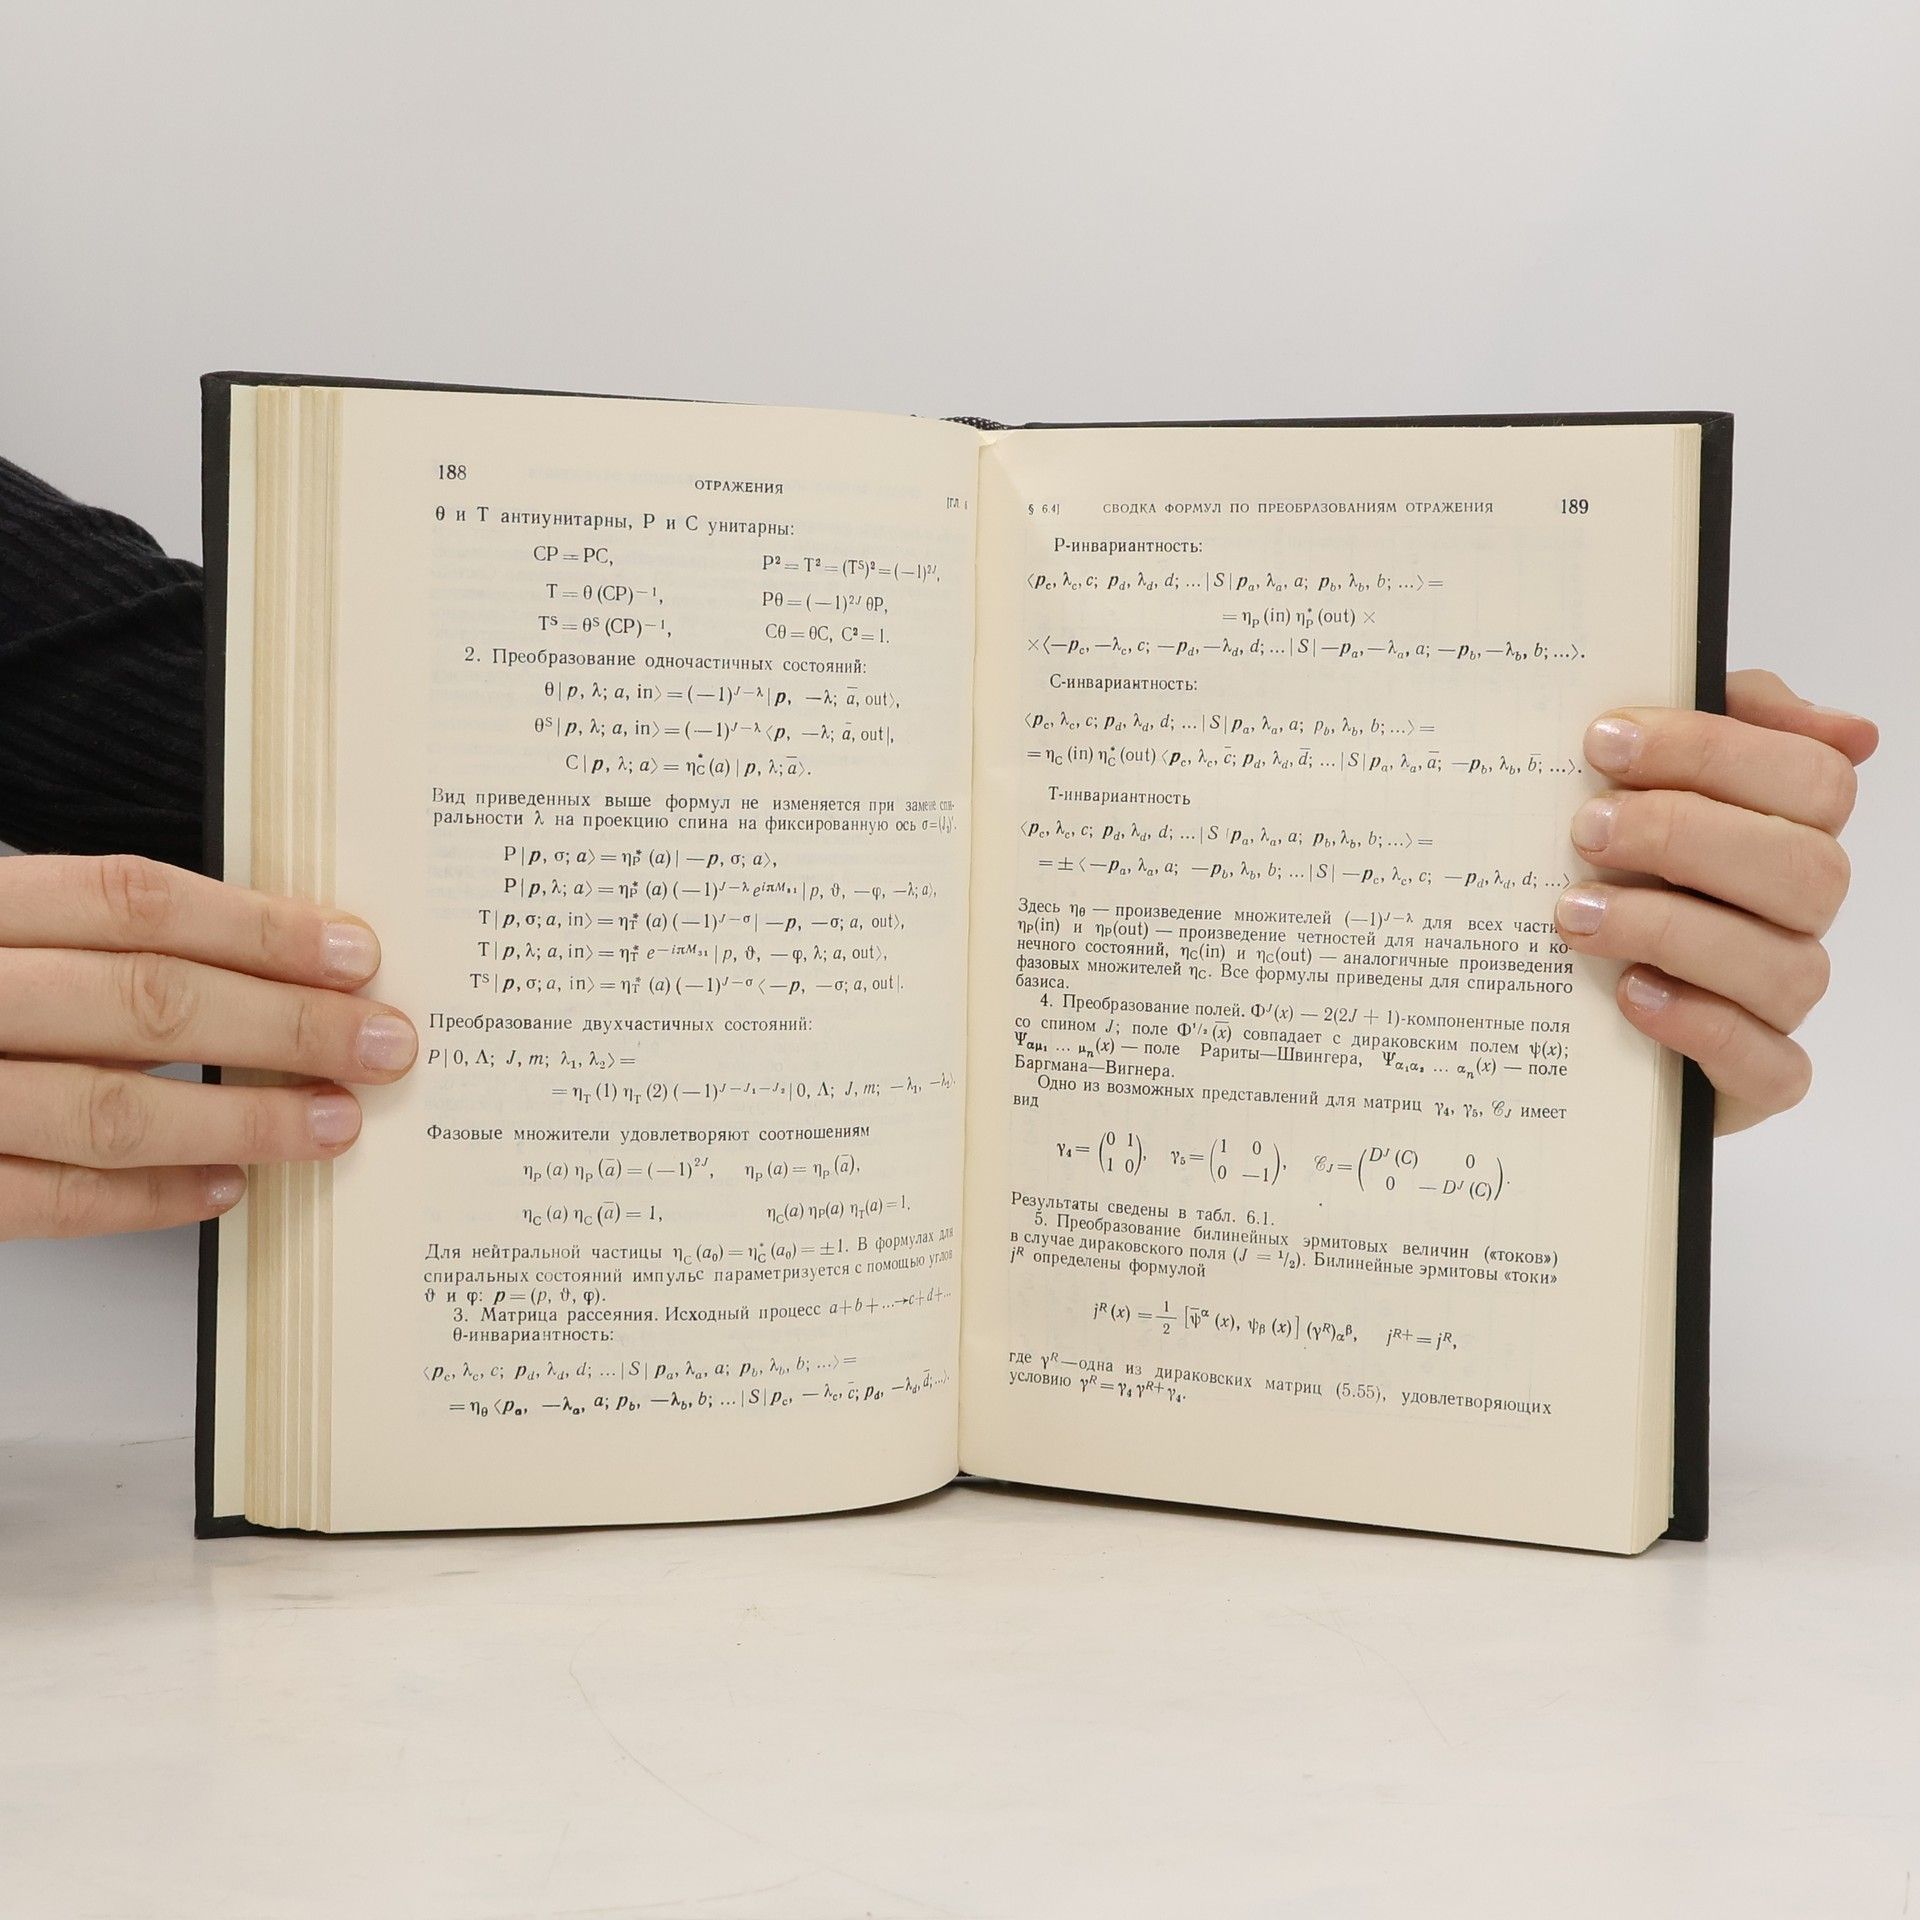 188
ОТРАЖЕНИЯ
[ГЛ
θ и T антиунитарны, P и C унитарны:
CP = PC, P² = T² = (Tˢ)² = (−1)²ᴶ,
T = θ (CP)⁻¹, Pθ = (−1)²ᴶ θP,
Tˢ = θˢ (CP)⁻¹, Cθ = θC, C² = 1.
2. Преобразование одночастичных состояний:
θ | p, λ; a, in⟩ = (−1)^{J−λ} | p, −λ; a̅, out⟩,
θˢ | p, λ; a, in⟩ = (−1)^{J−λ} ⟨p, −λ; a̅, out |,
C | p, λ; a⟩ = η*_C (a) | p, λ; a̅⟩.
Вид приведенных выше формул не изменяется при замене спи-
ральности λ на проекцию спина на фиксированную ось σ=
P | p, σ; a⟩ = η*_P (a) | −p, σ; a⟩,
P | p, λ; a⟩ = η*_P (a) (−1)^{J−λ} e^{iπM₃₁} | p, ϑ, −φ, −λ; a⟩,
T | p, σ; a, in⟩ = η*_T (a) (−1)^{J−σ} | −p, −σ; a, out⟩,
T | p, λ; a, in⟩ = η*_T e^{−iπM₃₁} | p, ϑ, −φ, λ; a, out⟩,
Tˢ | p, σ; a, in⟩ = η*_T (a) (−1)^{J−σ} ⟨−p, −σ; a, out |.
Преобразование двухчастичных состояний:
P | 0, Λ; J, m; λ₁, λ₂⟩ =
= η_T (1) η_T (2) (−1)^{J−J₁−J₂} | 0, Λ; J, m; −λ₁, −λ₂⟩.
Фазовые множители удовлетворяют соотношениям
η_P (a) η_P (a̅) = (−1)^{2J}, η_P (a) = η_P (a̅),
η_C (a) η_C (a̅) = 1, η_C(a) η_P(a) η_T(a) = 1.
Для нейтральной частицы η_C (a₀) = η*_C (a₀) = ±1. В формулах для
спиральных состояний импульс параметризуется с помощью углов
ϑ и φ: p = (p, ϑ, φ).
3. Матрица рассеяния. Исходный процесс a+b+...→c+d+...
θ-инвариантность:
⟨p_c, λ_c, c; p_d, λ_d, d; ... | S | p_a, λ_a, a; p_b, λ_b, b; ...⟩ =
= η_θ ⟨p_a, −λ_a, a; p_b, −λ_b, b; ... | S | p_c, −λ_c, c̅; p_d, −λ_d, d̅; ...⟩.
§ 6.4]
СВОДКА ФОРМУЛ ПО ПРЕОБРАЗОВАНИЯМ ОТРАЖЕНИЯ
189
P-инвариантность:
⟨p_c, λ_c, c; p_d, λ_d, d; ... | S | p_a, λ_a, a; p_b, λ_b, b; ...⟩ =
= η_P (in) η*_P (out) ×
× ⟨−p_c, −λ_c, c; −p_d, −λ_d, d; ... | S | −p_a, −λ_a, a; −p_b, −λ_b, b; ...⟩.
C-инвариантность:
⟨p_c, λ_c, c; p_d, λ_d, d; ... | S | p_a, λ_a, a; p_b, λ_b, b; ...⟩ =
= η_C (in) η*_C (out) ⟨p_c, λ_c, c̅; p_d, λ_d, d̅; ... | S | p_a, λ_a, a̅; −p_b, λ_b, b̅; ...⟩.
T-инвариантность
⟨p_c, λ_c, c; p_d, λ_d, d; ... | S | p_a, λ_a, a; p_b, λ_b, b; ...⟩ =
= ± ⟨−p_a, λ_a, a; −p_b, λ_b, b; ... | S | −p_c, λ_c, c; −p_d, λ_d, d; ...⟩
Здесь η_θ — произведение множителей (−1)^{J−λ} для всех части
η_P(in) и η_P(out) — произведение четностей для начального и ко-
нечного состояний, η_C(in) и η_C(out) — аналогичные произведения
фазовых множителей η_C. Все формулы приведены для спирального
базиса.
4. Преобразование полей. Φᴶ(x) — 2(2J + 1)-компонентные поля
со спином J; поле Φ^{1/2} (x) совпадает с дираковским полем ψ(x);
Ψ_{αμ₁ ... μ_n}(x) — поле Рариты—Швингера, Ψ_{α₁α₂ ... α_n}(x) — поле
Баргмана—Вигнера.
Одно из возможных представлений для матриц γ₄, γ₅, 𝒞_J имеет
вид
γ₄ = (0 1; 1 0), γ₅ = (1 0; 0 −1), 𝒞_J = (Dᴶ (C) 0; 0 −Dᴶ (C)).
Результаты сведены в табл. 6.1.
5. Преобразование билинейных эрмитовых величин («токов»)
в случае дираковского поля (J = 1/2). Билинейные эрмитовы «токи»
jᴿ определены формулой
jᴿ (x) = 1/2 [ψ̅^α (x), ψ_β (x)] (γᴿ)_α^β, jᴿ⁺ = jᴿ,
где γᴿ — одна из дираковских матриц (5.55), удовлетворяющих
условию γᴿ = γ₄ γᴿ⁺ γ₄.